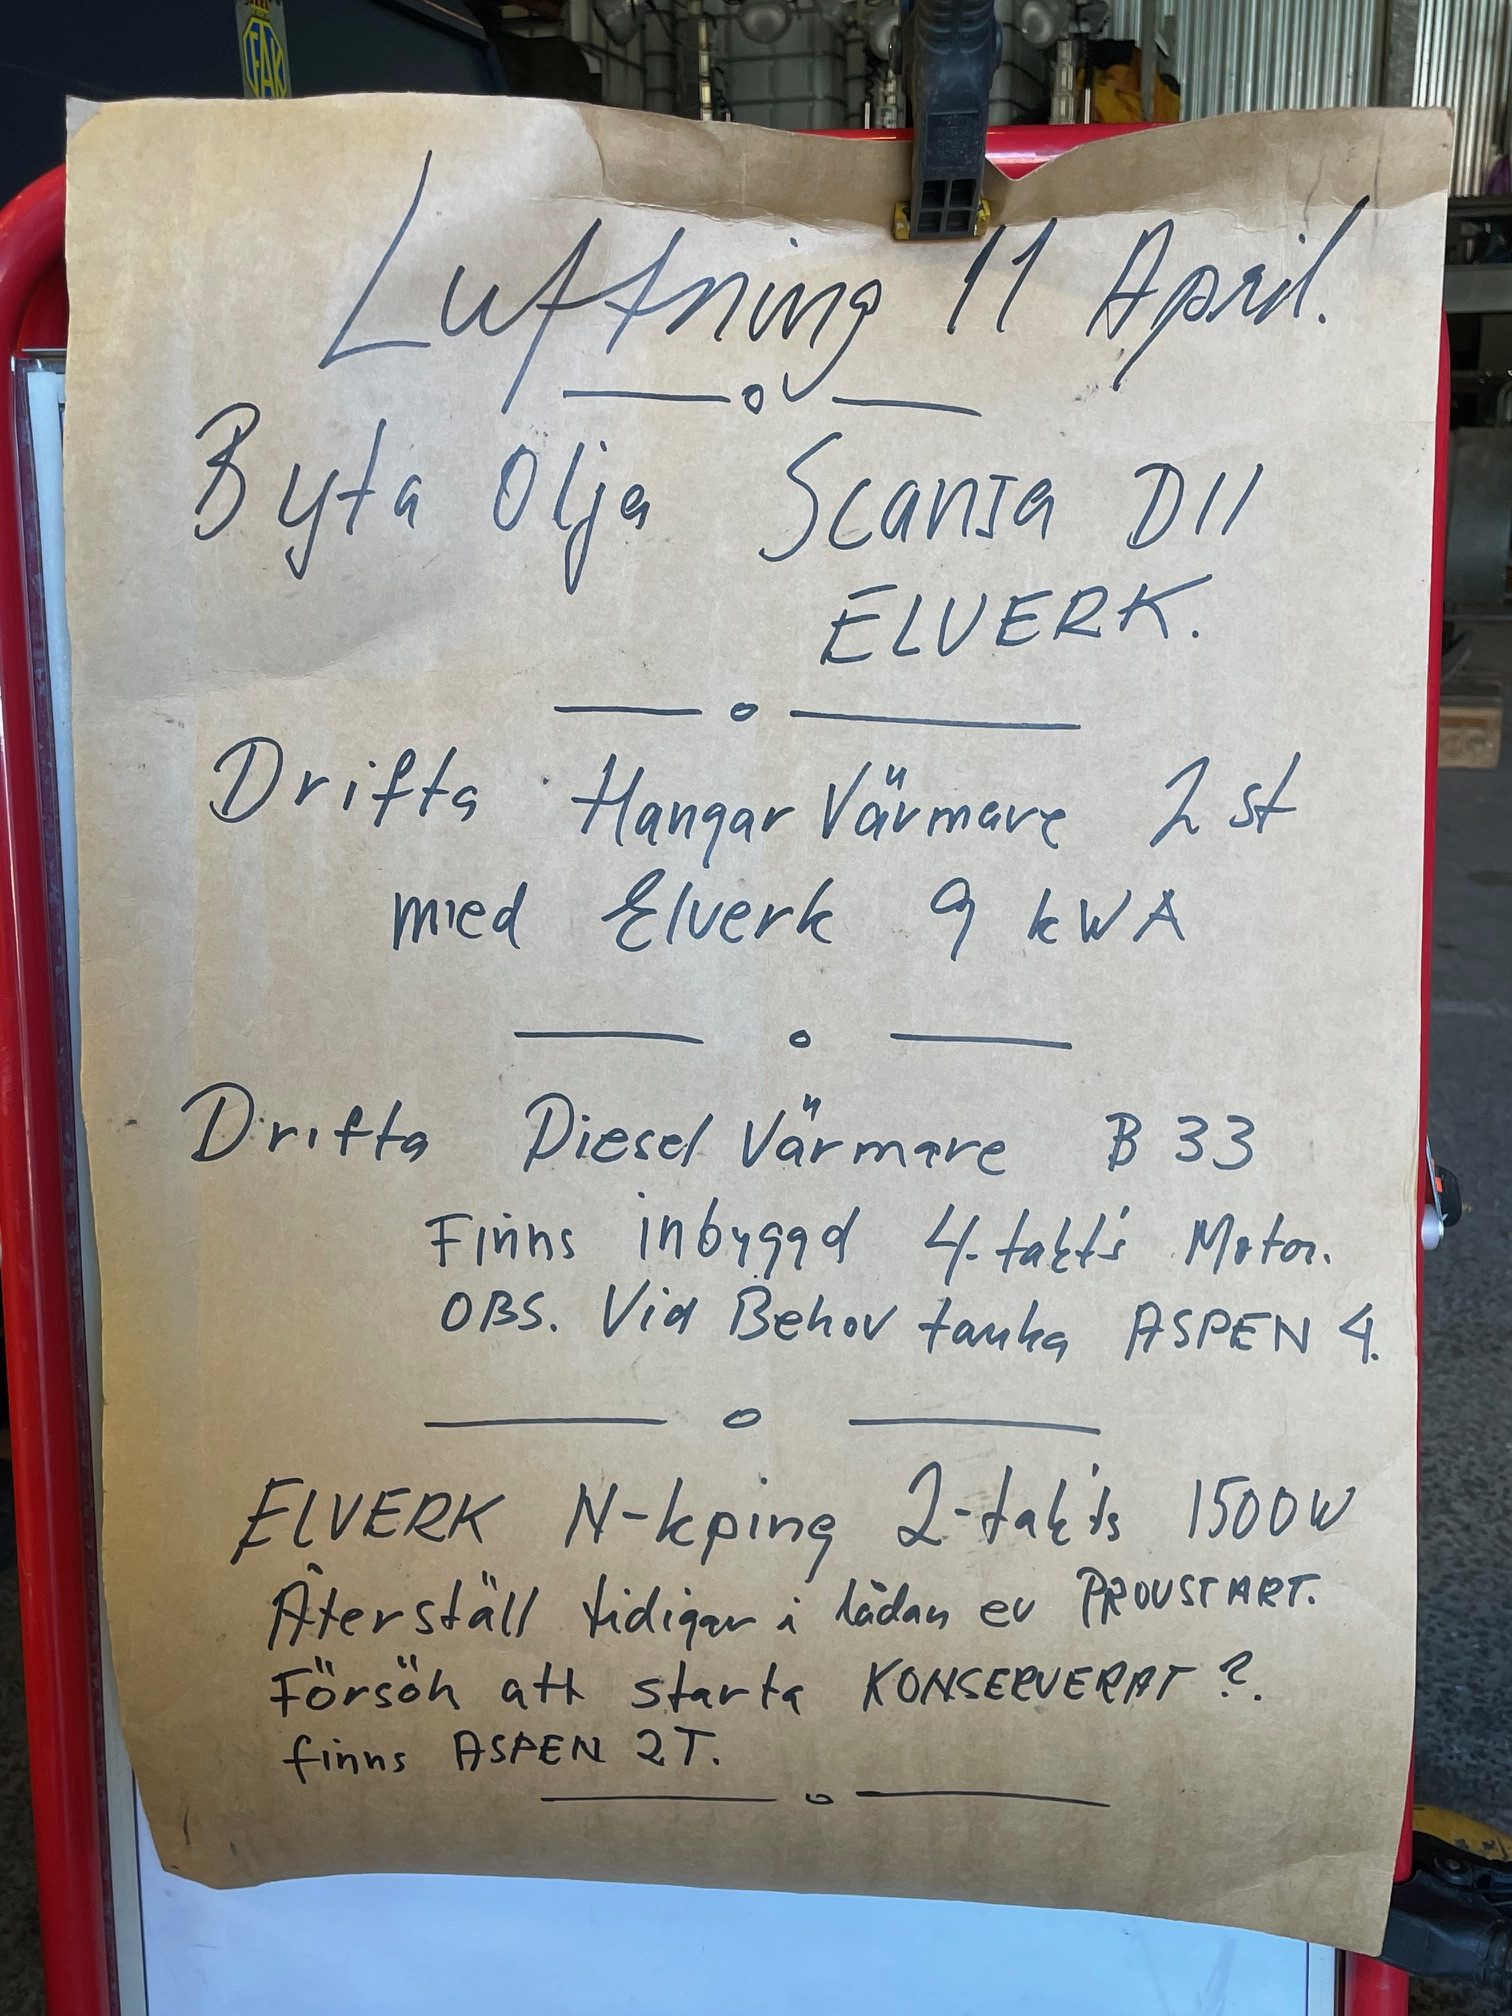 FAK
Luftning 11 April.
Byta Olja Scania D11
ELVERK.
Drifta Hangar Värmare 2 st
med Elverk 9 kWA
Drifta Diesel Värmare B 33
Finns inbyggd 4-takt's Motor.
OBS. Vid Behov tanka ASPEN 4.
ELVERK N-kping 2-takt's 1500W
Återställ tidigar i lådan ev PROVSTART.
Försök att starta KONSERVERAT ?.
finns ASPEN 2T.